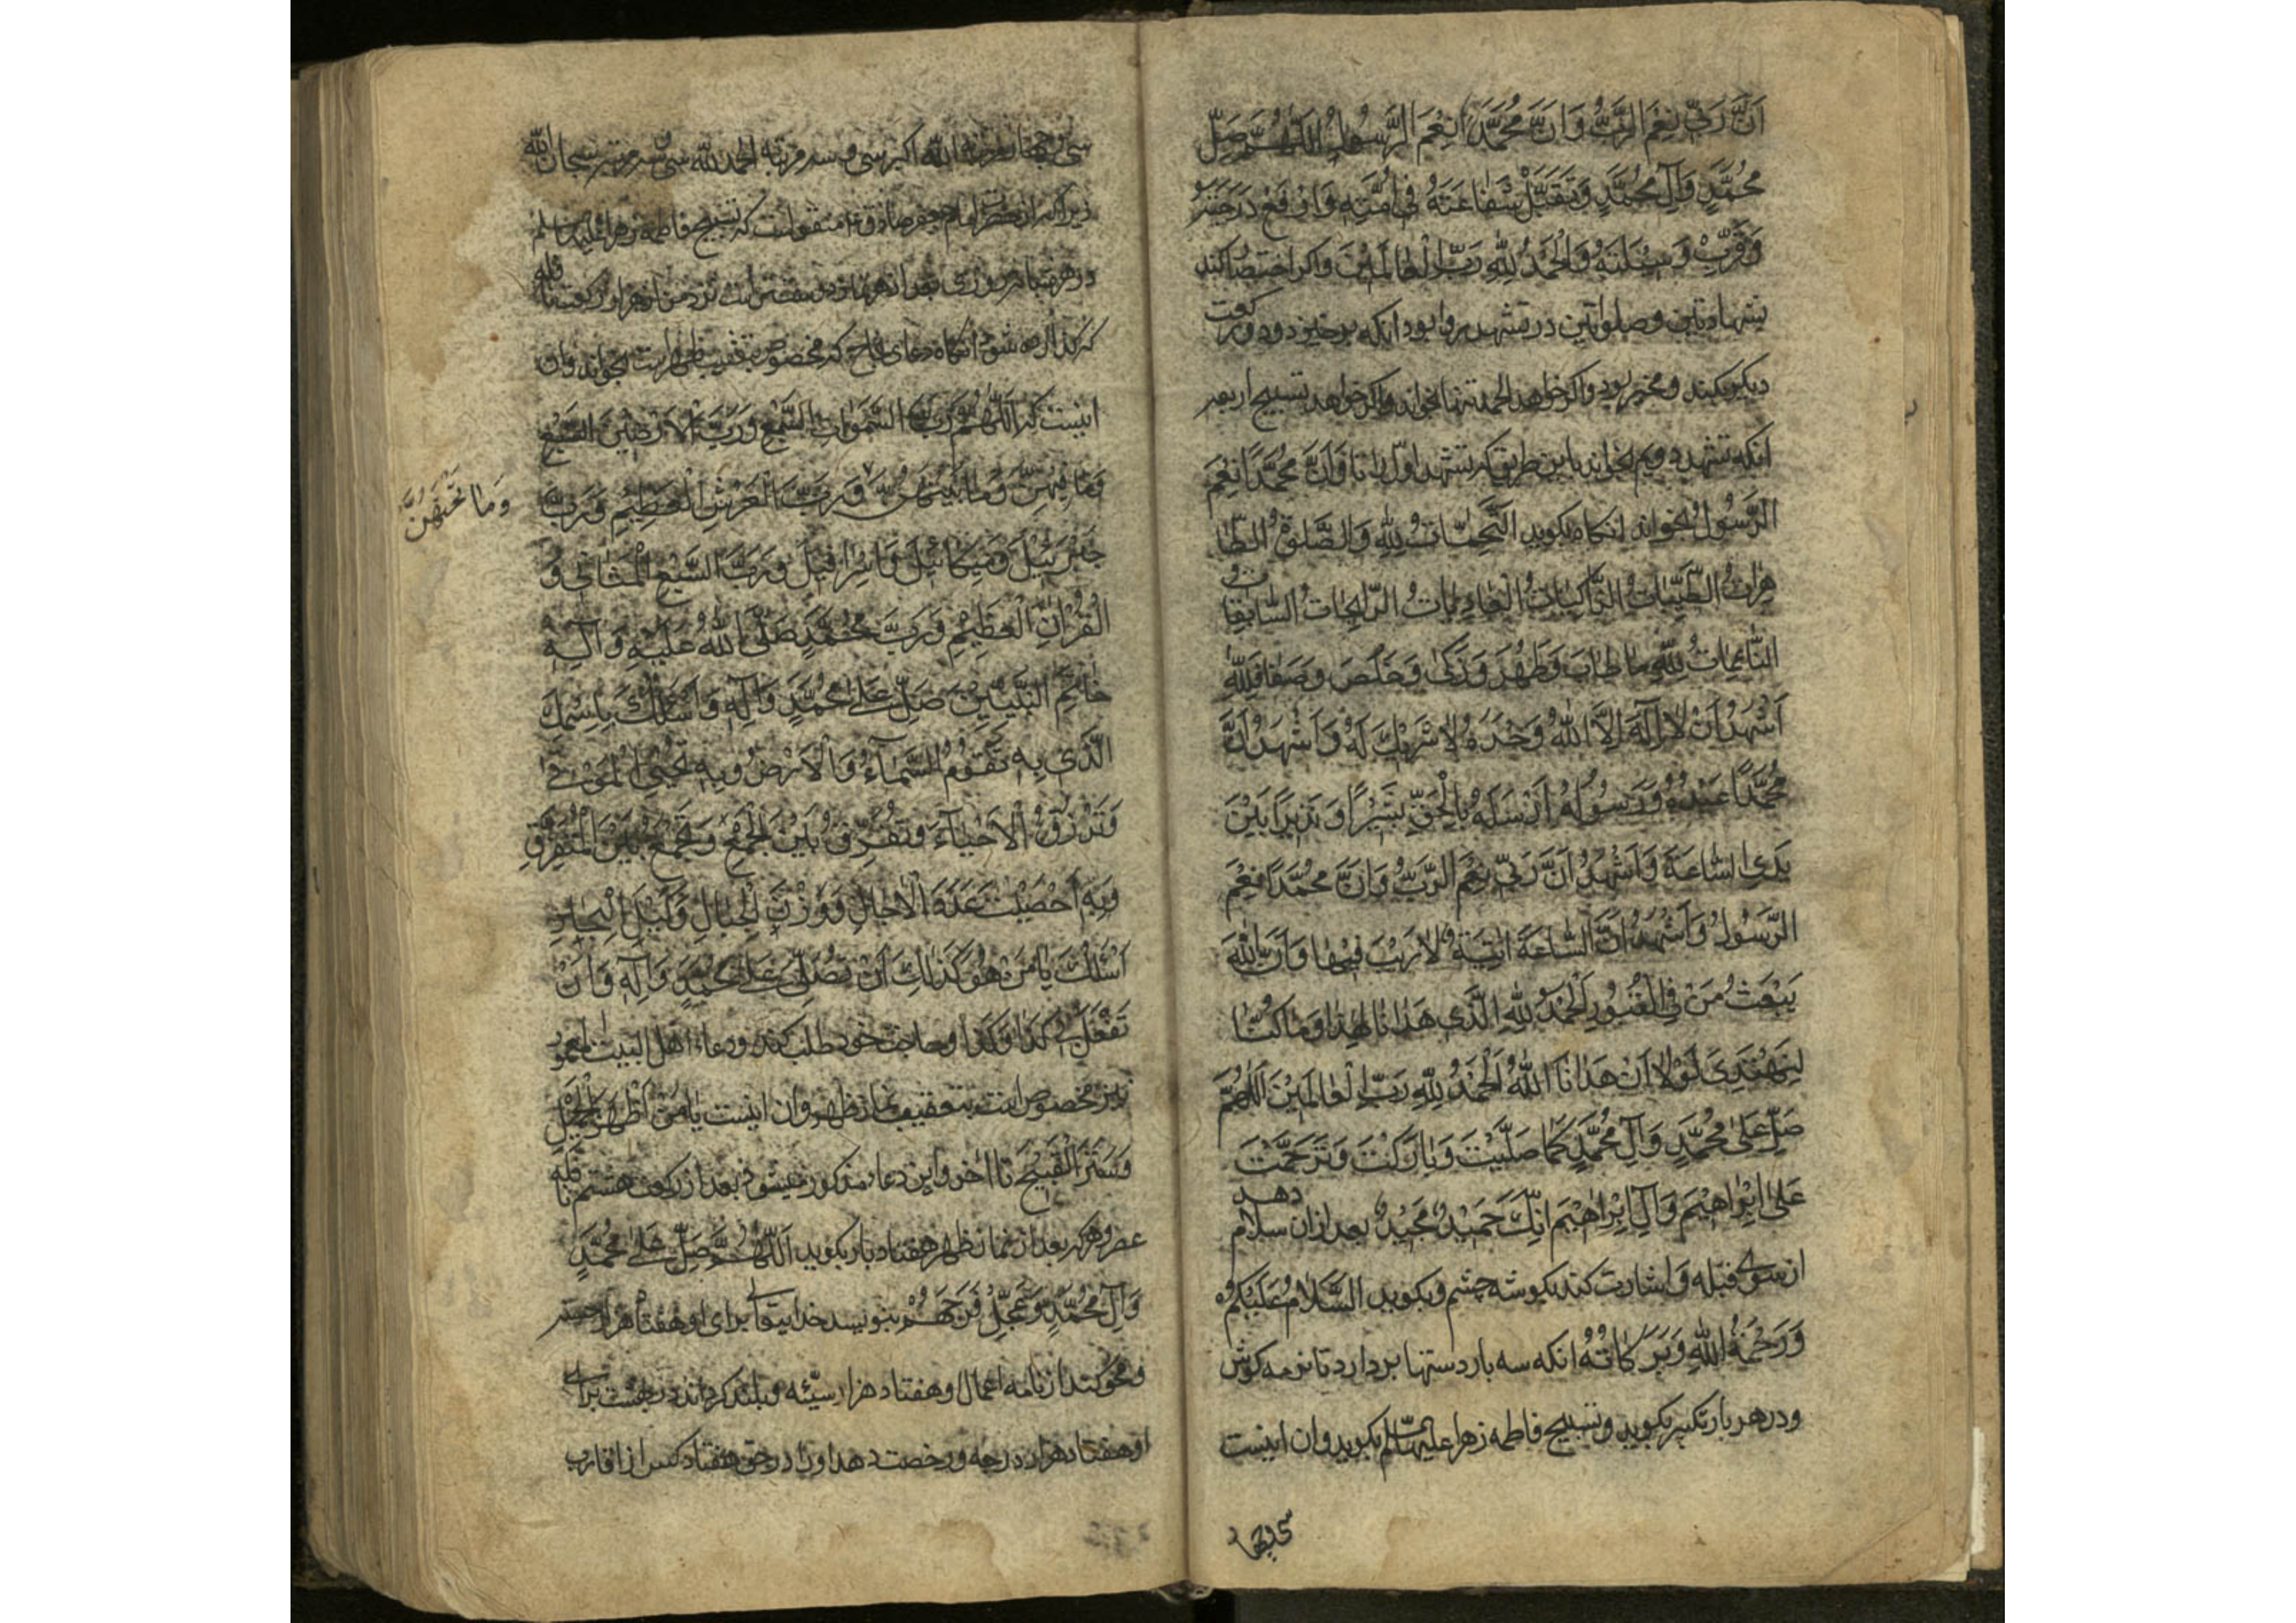 اَنَّ رَبّی نِعْمَ الرَّبُّ وَاَنَّ مُحَمَّدًا نِعْمَ الرَّسُولُ اَللّٰهُمَّ صَلِّ
مُحَمَّدٍ وَآلِ مُحَمَّدٍ وَتَقَبَّلْ شَفَاعَتَهُ فِی اُمَّتِهِ وَارْفَعْ دَرَجَتَهُ
وَقَرِّبْ وَسِیلَتَهُ وَالْحَمْدُ لِلّٰهِ رَبِّ الْعَالَمِیْنَ واکر اختصار کند
بشهادتین وصلواتین در تشهد روا بود انکه برخیزد ودو رکعت
دیکر بکند ومخیر بود واکر خواهد الحمد تنها بخواند واکر خواهد تسبیح اربعه
انکه تشهد دویم بخواند باین طریق که تشهد اول را تا وَاَنَّ مُحَمَّدًا نِعْمَ
الرَّسُولُ بخواند انکاه بکوید اَلتَّحِیَّاتُ لِلّٰهِ وَالصَّلَوٰةُ الطَّا
هِرَاتُ الطَّیِّبَاتُ الزَّاکِیَاتُ الْغَادِیَاتُ الرَّایِحَاتُ السَّابِغَاتُ
النَّاعِمَاتُ لِلّٰهِ مَا طَابَ وَطَهُرَ وَزَکٰی وَخَلُصَ وَصَفَا فَلِلّٰهِ
اَشْهَدُ اَنْ لَا اِلٰهَ اِلَّا اللّٰهُ وَحْدَهُ لَا شَرِیْكَ لَهُ وَاَشْهَدُ اَنَّ
مُحَمَّدًا عَبْدُهُ وَرَسُولُهُ اَرْسَلَهُ بِالْحَقِّ بَشِیْرًا وَنَذِیرًا بَیْنَ
یَدَیِ السَّاعَةِ وَاَشْهَدُ اَنَّ رَبّی نِعْمَ الرَّبُّ وَاَنَّ مُحَمَّدًا نِعْمَ
الرَّسُولُ وَاَشْهَدُ اَنَّ السَّاعَةَ آتِیَةٌ لَا رَیْبَ فِیْهَا وَاَنَّ اللّٰهَ
یَبْعَثُ مَنْ فِی الْقُبُورِ اَلْحَمْدُ لِلّٰهِ الَّذِی هَدَانَا لِهٰذَا وَمَا کُنَّا
لِنَهْتَدِیَ لَوْلَا اَنْ هَدَانَا اللّٰهُ اَلْحَمْدُ لِلّٰهِ رَبِّ الْعَالَمِیْنَ اَللّٰهُمَّ
صَلِّ عَلٰی مُحَمَّدٍ وَآلِ مُحَمَّدٍ کَمَا صَلَّیْتَ وَبَارَکْتَ وَتَرَحَّمْتَ
عَلٰی اِبْرَاهِیْمَ وَآلِ اِبْرَاهِیْمَ اِنَّكَ حَمِیْدٌ مَجِیْدٌ بعد ازان سلام دهد
از سوی قبله واشارت کند بکوشه چشم وبکوید اَلسَّلَامُ عَلَیْکُمْ
وَرَحْمَةُ اللّٰهِ وَبَرَکَاتُهُ انکه سه بار دستها بردارد تا نرمه کوش
ودر هر بار تکبیر بکوید وتسبیح فاطمه زهرا علیها السلم بکوید وان اینست
سی وچهار
سی وچهار مرتبه الله اکبر سی وسه مرتبه الحمد لله سی وسه مرتبه سبحان الله
زیراکه از حضرت امام جعفر صادق ع منقولست که تسبیح فاطمه زهرا علیها سلم
در هر روزی بعد از هر نماز دوستر است نزد من از هزار رکعت نافله
که کذارده شود انکاه دعای نجاح که مخصوص بتعقیب ظهر است بخواند وان
اینست که اَللّٰهُمَّ رَبَّ السَّمٰوَاتِ السَّبْعِ وَرَبَّ الْاَرَضِیْنَ السَّبْعِ
وَمَا فِیْهِنَّ وَمَا بَیْنَهُنَّ وَرَبَّ الْعَرْشِ الْعَظِیْمِ وَرَبَّ
وَمَا تَحْتَهُنَّ
جَبْرَئِیْلَ وَمِیکَائِیْلَ وَاِسْرَافِیْلَ وَرَبَّ السَّبْعِ الْمَثَانِی وَ
الْقُرْآنِ الْعَظِیْمِ وَرَبَّ مُحَمَّدٍ صَلَّی اللّٰهُ عَلَیْهِ وَآلِهِ
خَاتَمِ النَّبِیِّیْنَ صَلِّ عَلٰی مُحَمَّدٍ وَآلِهِ وَاَسْئَلُكَ بِاسْمِكَ
الَّذِی بِهِ تَقُوْمُ السَّمَآءُ وَالْاَرْضُ وَبِهِ تُحْیِی الْمَوْتٰی
وَتَرْزُقُ الْاَحْیَآءَ وَتُفَرِّقُ بَیْنَ الْجَمْعِ وَتَجْمَعُ بَیْنَ الْمُتَفَرِّقِ
وَبِهِ اَحْصَیْتَ عَدَدَ الْآجَالِ وَوَزْنَ الْجِبَالِ وَکَیْلَ الْبِحَارِ
اَسْئَلُكَ یَا مَنْ هُوَ کَذٰلِكَ اَنْ تُصَلِّیَ عَلٰی مُحَمَّدٍ وَآلِهِ وَاَنْ
تَفْعَلَ بِی کَذَا وَکَذَا وحاجت خود طلب کند ودعاء اهل البیت المعمور
نیز مخصوص است بتعقیب نماز ظهر وان اینست یَا مَنْ اَظْهَرَ الْجَمِیْلَ
وَسَتَرَ الْقَبِیْحَ تا اخر واین دعاء مذکور میشود بعد از رکعت هشتم نافله
عصر وهرکه بعد از نماز ظهر هفتاد بار بکوید اَللّٰهُمَّ صَلِّ عَلٰی مُحَمَّدٍ
وَآلِ مُحَمَّدٍ وَعَجِّلْ فَرَجَهُمْ بنویسد خدایتعالی برای او هفتاد هزار حسنه
ومحو کند از نامه اعمال او هفتاد هزار سیّئه وبلند کرداند در بهشت برای
او هفتاد هزار درجه ورخصت دهد اورا در حق هفتاد کس از اقارب